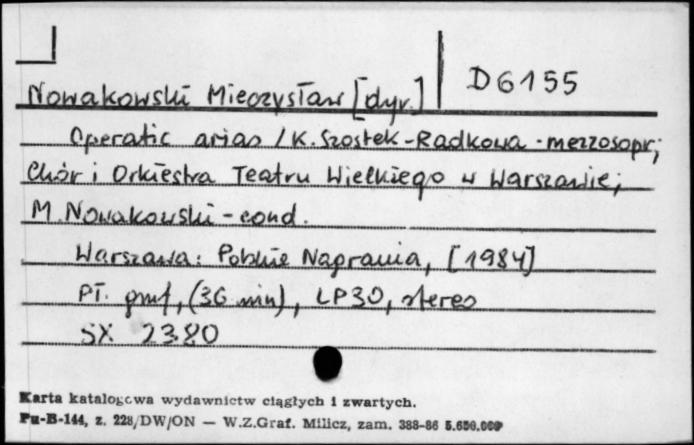 Nowakowski Mieczysław [dyr.] D6155
Operatic arias / K. Szostek-Radkowa - mezzosopr;
Chór i Orkiestra Teatru Wielkiego w Warszawie;
M. Nowakowski - cond.
Warszawa: Polskie Nagrania, [1984]
Pł. gmf, (36 min), LP30, stereo
SX 2380
Karta katalogowa wydawnictw ciągłych i zwartych.
Pu-B-144, z. 228/DW/ON — W.Z.Graf. Milicz, zam. 388-86 5.650.000